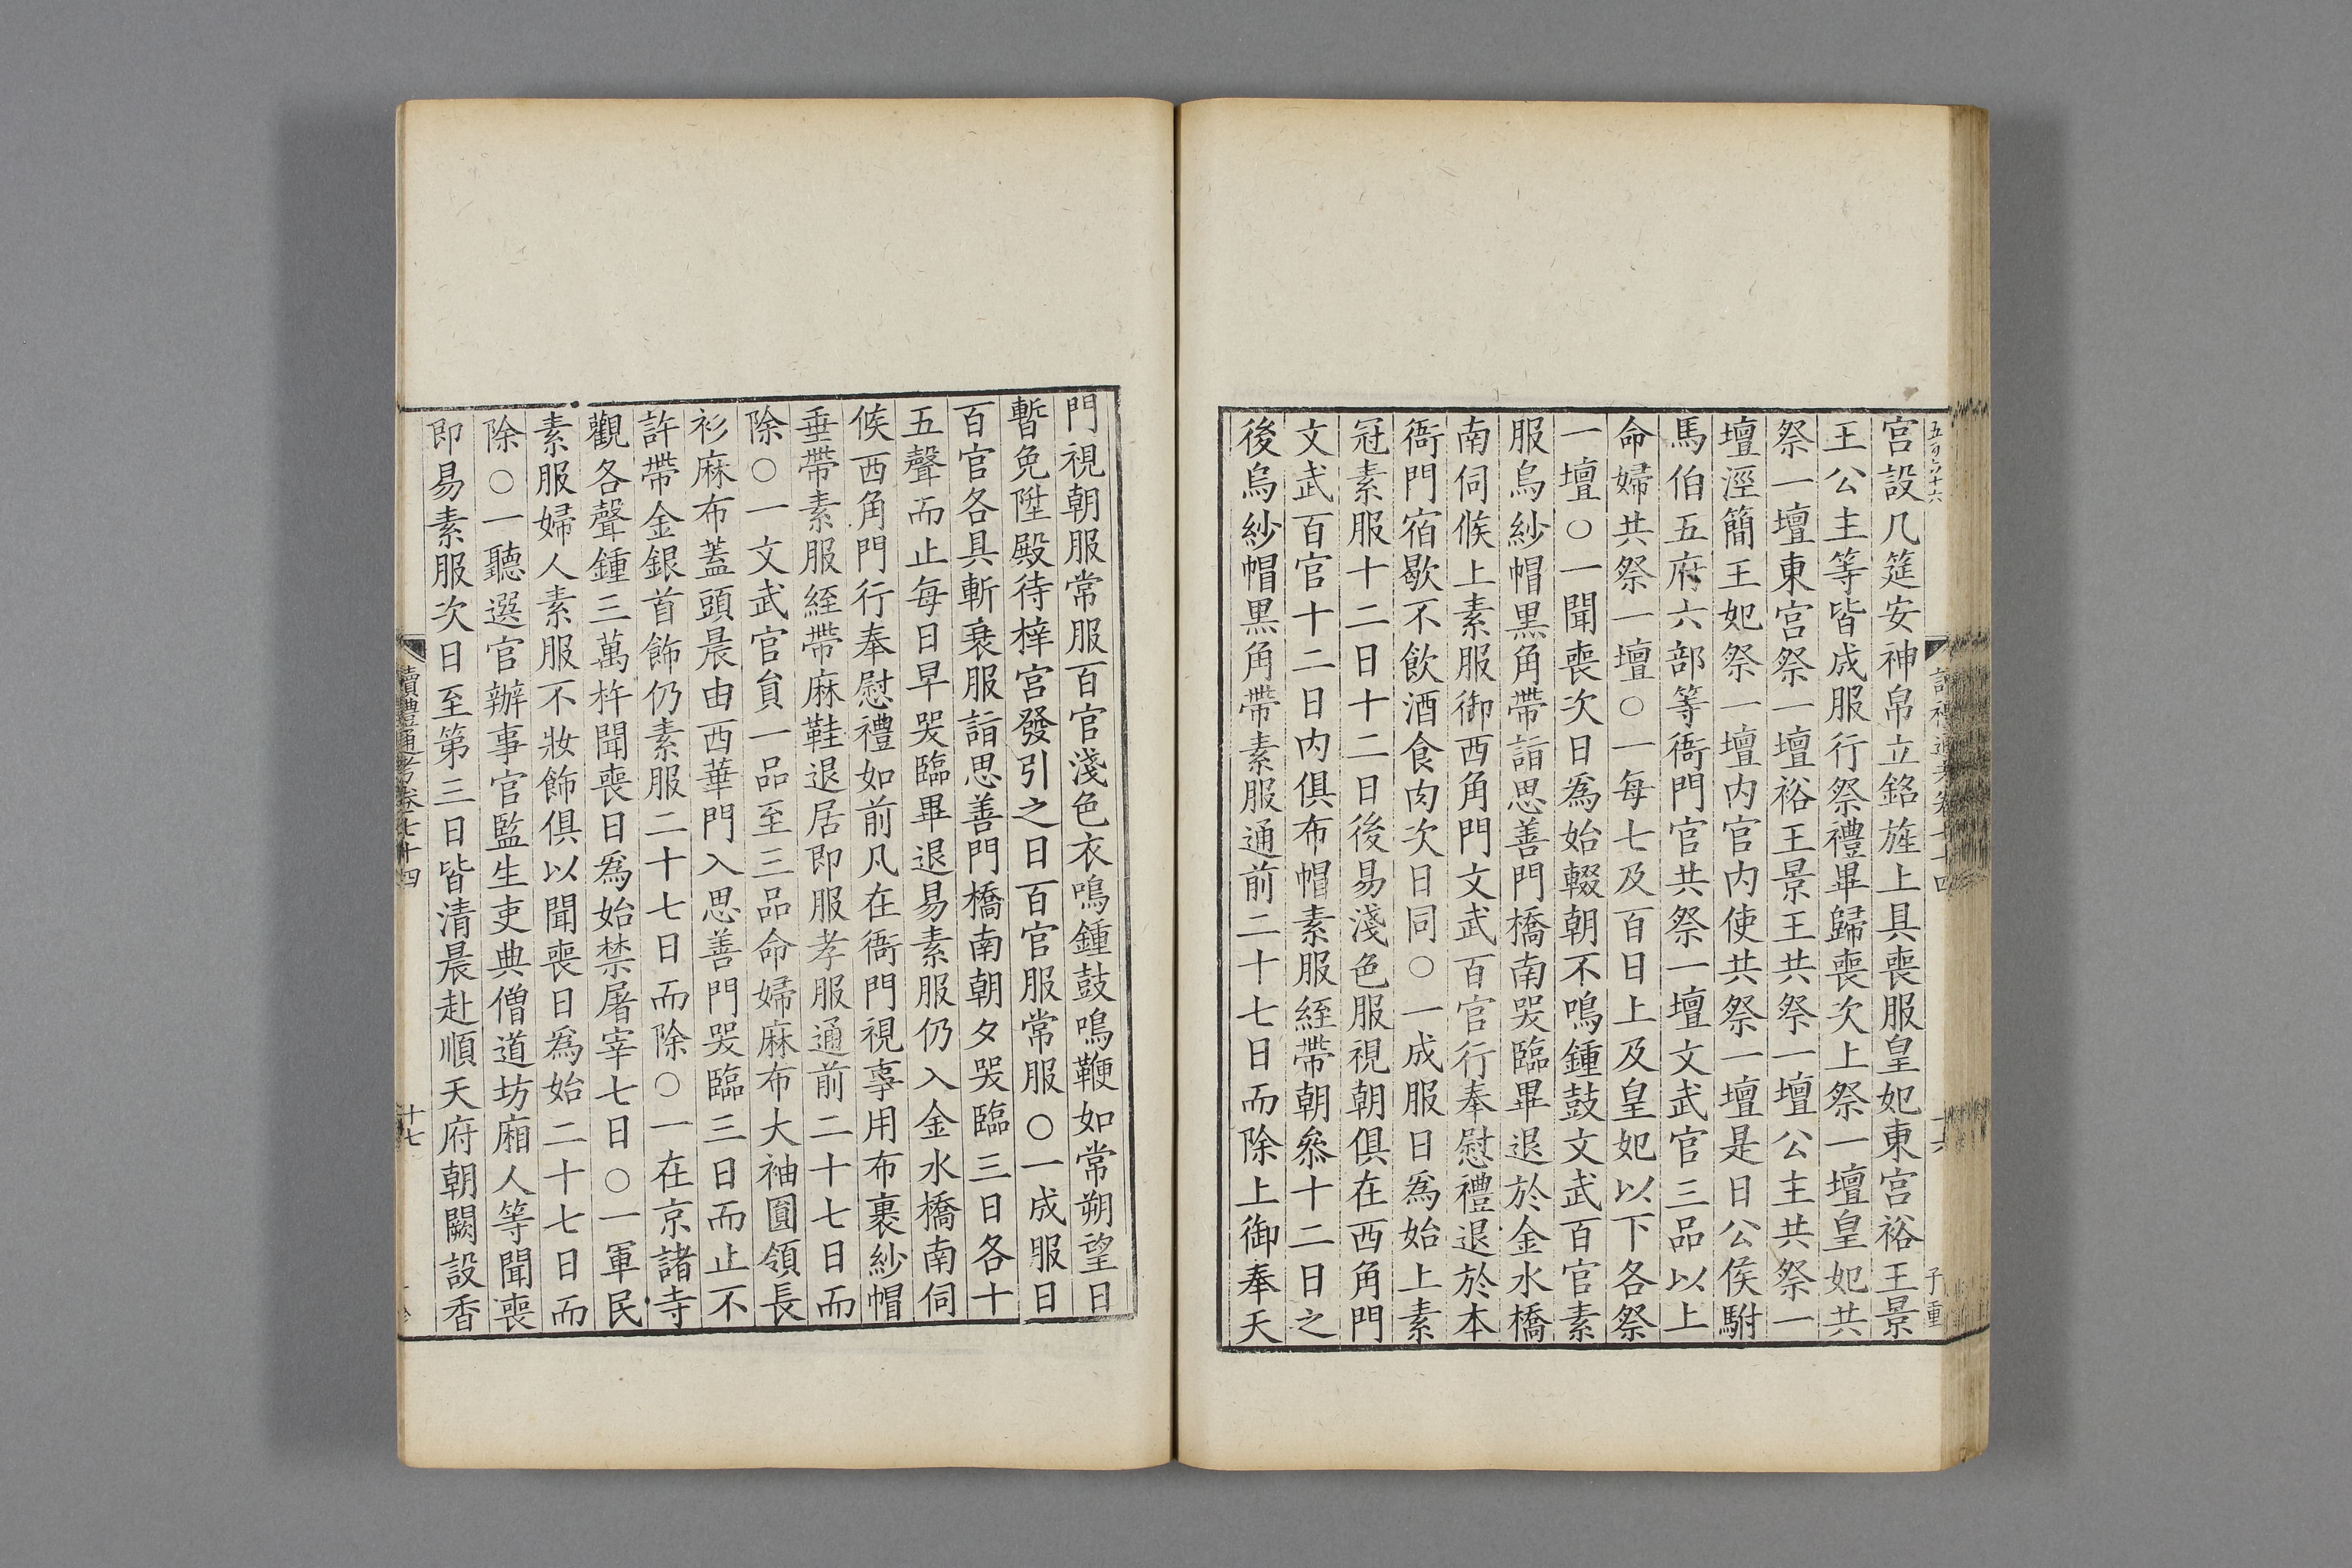 宮設几筵安神帛立銘旌上具喪服皇妃東宮裕王景
王公主等皆成服行祭禮畢歸喪次上祭一壇皇妃共
祭一壇東宮祭一壇裕王景王共祭一壇公主共祭一
壇涇簡王妃祭一壇内官内使共祭一壇是日公侯駙
馬伯五府六部等衙門官共祭一壇文武官三品以上
命婦共祭一壇○一每七及百日上及皇妃以下各祭
一壇○一聞喪次日爲始輟朝不鳴鍾鼓文武百官素
服烏紗帽黒角帶詣思善門橋南哭臨畢退於金水橋
南伺候上素服御西角門文武百官行奉慰禮退於本
衙門宿歇不飲酒食肉次日同○一成服日爲始上素
冠素服十二日十二日後易淺色服視朝俱在西角門
文武百官十二日内俱布帽素服絰帶朝叅十二日之
後烏紗帽黒角帶素服通前二十七日而除上御奉天
門視朝服常服百官淺色衣鳴鍾鼓鳴鞭如常朔望日
暫免陞殿待梓宮發引之日百官服常服○一成服日
百官各具斬衰服詣思善門橋南朝夕哭臨三日各十
五聲而止每日早哭臨畢退易素服仍入金水橋南伺
候西角門行奉慰禮如前凡在衙門視事用布裹紗帽
垂帶素服絰帶麻鞋退居即服孝服通前二十七日而
除○一文武官員一品至三品命婦麻布大袖圓領長
衫麻布蓋頭晨由西華門入思善門哭臨三日而止不
許帶金銀首飾仍素服二十七日而除○一在京諸寺
觀各聲鍾三萬杵聞喪日爲始禁屠宰七日○一軍民
素服婦人素服不妝飾俱以聞喪日爲始二十七日而
除○一聽選官辦事官監生吏典僧道坊廂人等聞喪
即易素服次日至第三日皆清晨赴順天府朝闕設香
讀禮通考卷七十四
十七